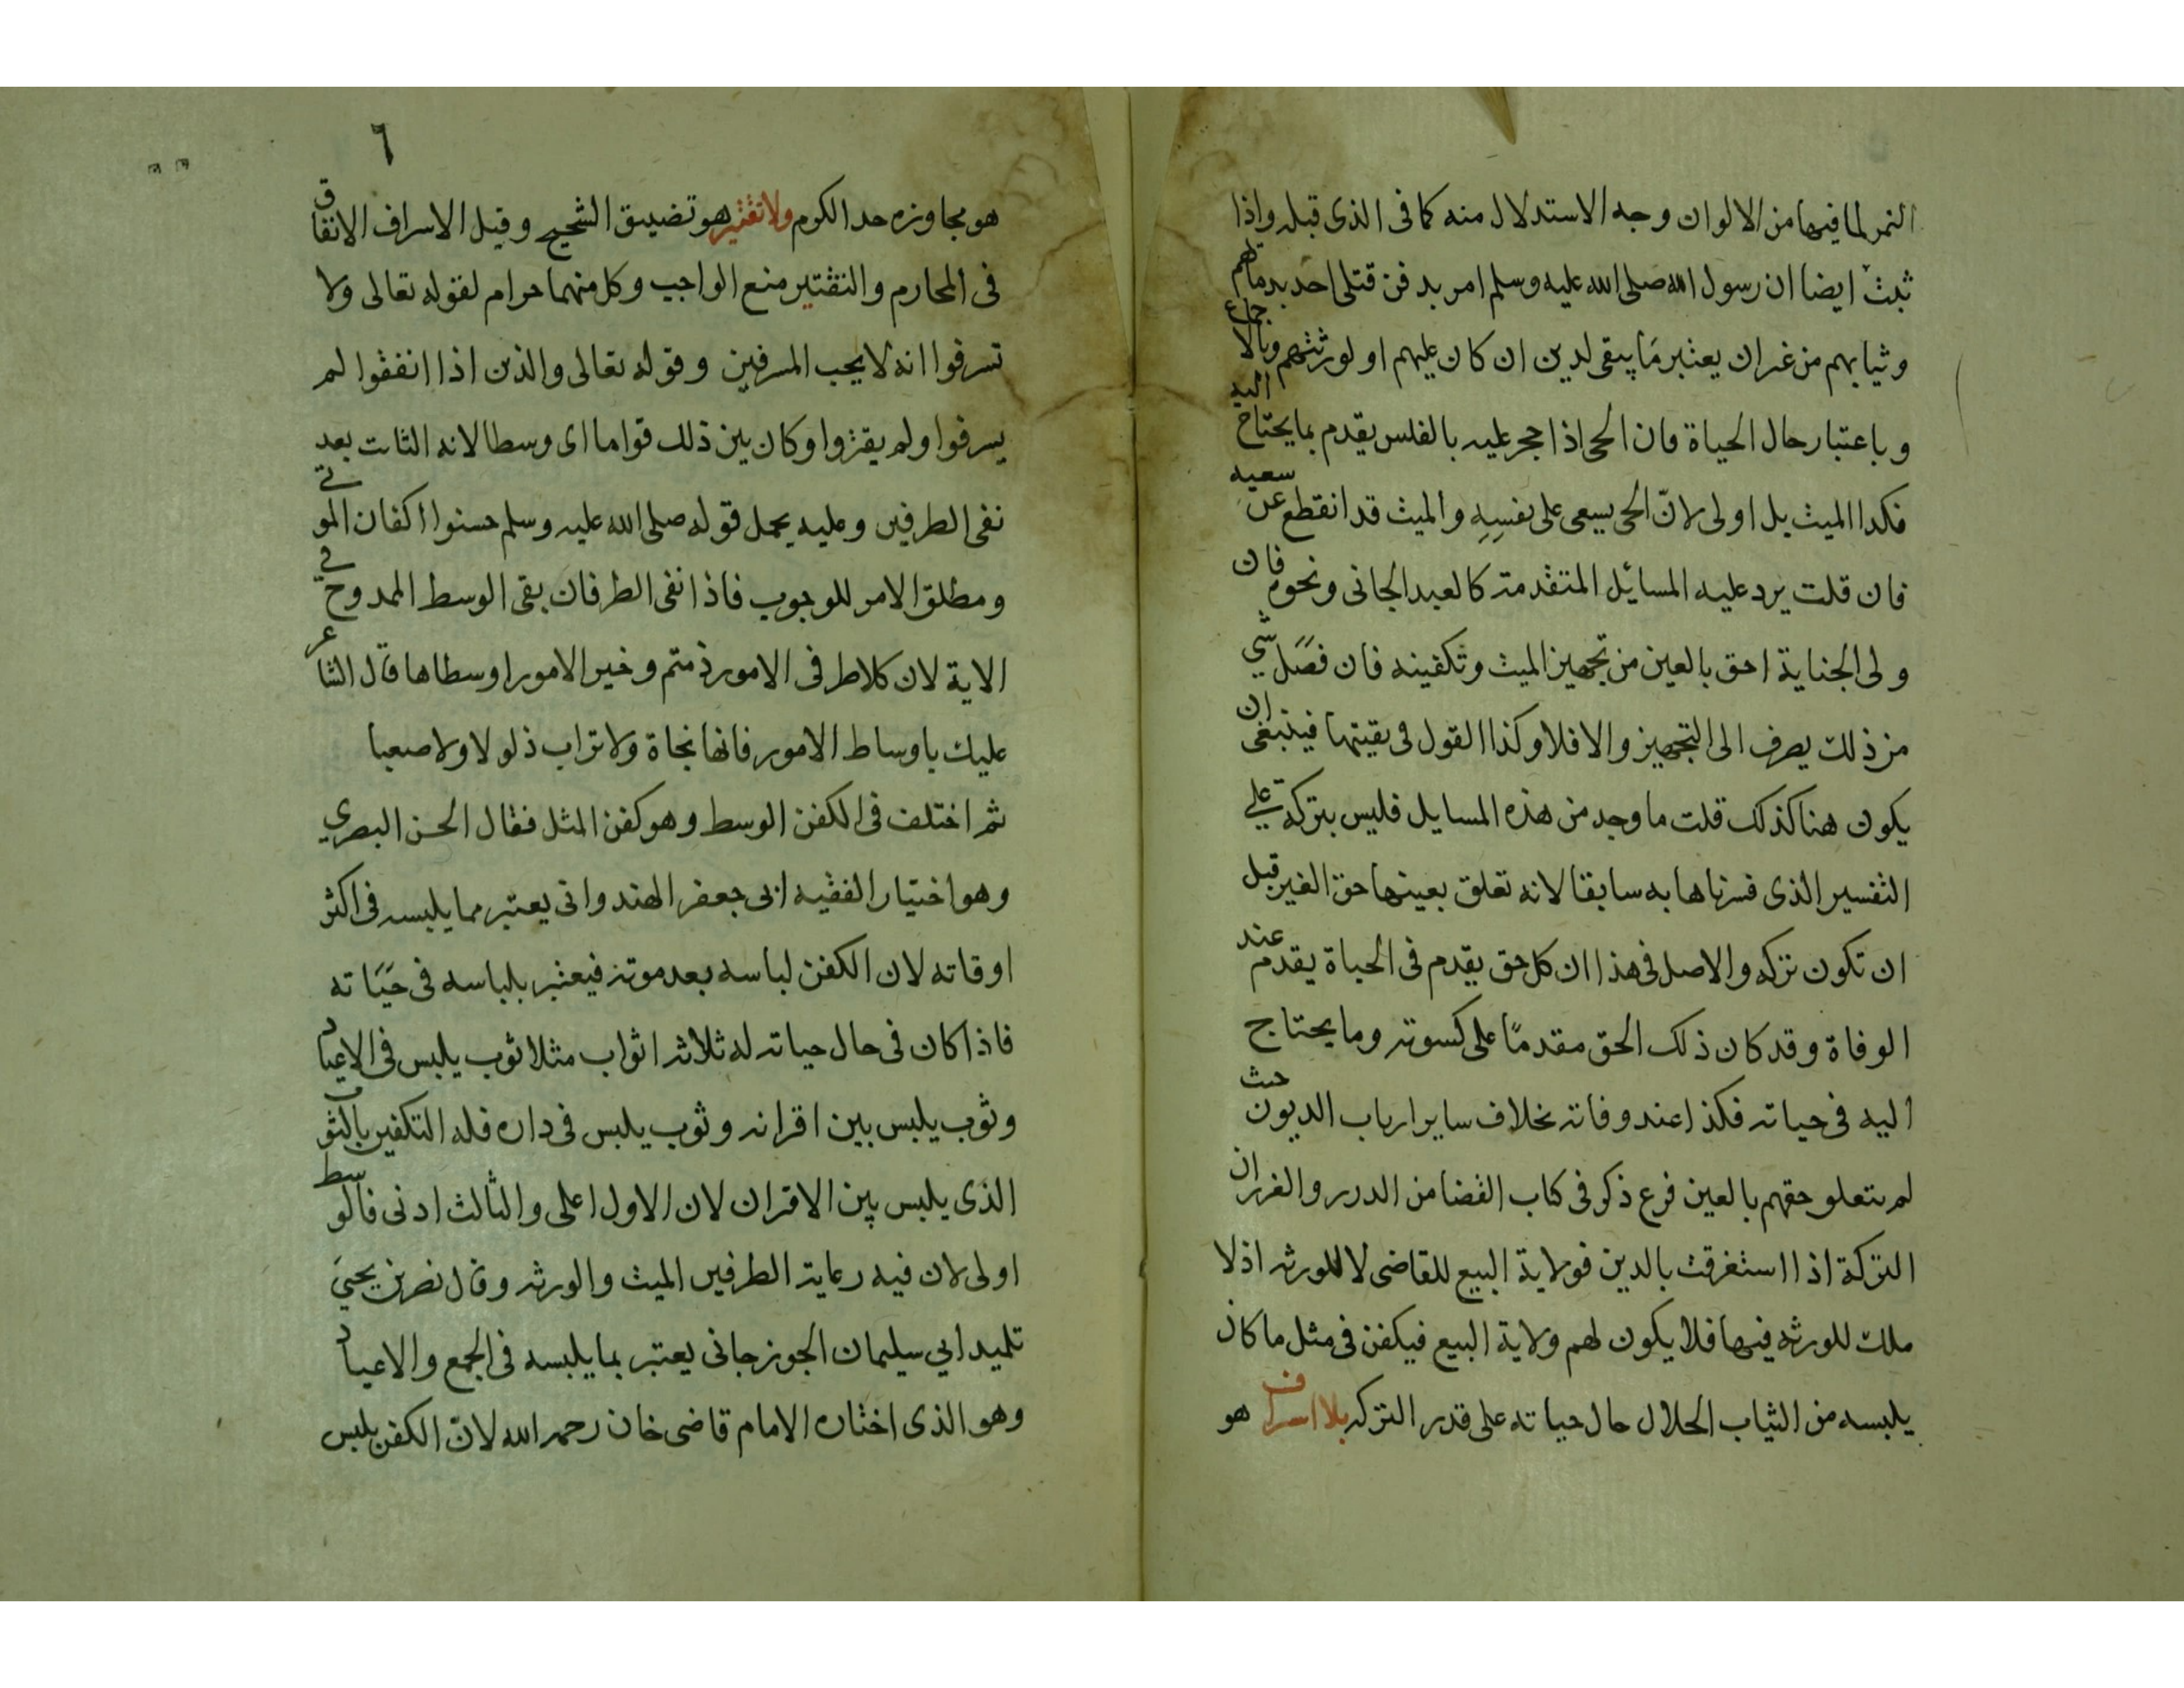 النمر لما فيها من الالوان وجه الاستدلال منه كما فى الذى قبله واذا
ثبت ايضا ان رسول الله صلى الله عليه وسلم امر بدفن قتلى احد بدمائهم
وثيابهم من غير ان يعتبر ما يبقى لدين ان كان عليهم او لورثتهم وبالاجماع
وباعتبار حال الحياة فان الحى اذا حجر عليه بالفلس يقدم بما يحتاج اليه
فكدا الميت بل اولى لانّ الحى يسعى على نفسِهِ والميت قد انقطع عن سعيه
فان قلت يرد عليه المسائل المتقدمة كالعبد الجانى ونحوه فان
ولى الجناية احق بالعين من تجهيز الميت وتكفينه فان فضَل شي
من ذلك يصرف الى التجهيز والا فلا وكذا القول فى بقيتها فينبغى ان
يكون هنا كذلك قلت ما وجد من هذه المسايل فليس بتركة علي
التفسير الذى فسرناها به سابقا لانه تعلق بعينها حق الغير قبل
ان تكون تركه والاصل فى هذا ان كل حق يقدم فى الحياة يقدم عند
الوفاة وقد كان ذلك الحق مقدمًا على كسوته وما يحتاج
اليه فى حياته فكذا عند وفاته بخلاف ساير ارباب الديون حيث
لم يتعلق حقهم بالعين فرع ذكر فى كتاب القضا من الدرر والغرر ان
التركة اذا استغرقت بالدين فولاية البيع للقاضى لا للورثه اذ لا
ملك للورثه فيها فلا يكون لهم ولاية البيع فيكفن فى مثل ما كان
يلبسه من الثياب الحلال حال حياته على قدر التركه بلا اسراف هو
٦
هو مجاوزه حد الكرم ولا تقتير هو تضييق الشحيح وقيل الاسراف الانفاق
فى المحارم والتقتير منع الواجب وكل منهما حرام لقوله تعالى ولا
تسرفوا انه لا يحب المسرفين وقوله تعالى والذين اذا انفقوا لم
يسرفوا ولم يقتروا وكان بين ذلك قواما اى وسطا لانه الثابت بعد
نفى الطرفين وعليه يحمل قوله صلى الله عليه وسلم حسنوا اكفان الموتى
ومطلق الامر للوجوب فاذا نفى الطرفان بقى الوسط الممدوح فى
الاية لان كلا طرفى الامور ذميم وخير الامور اوسطاها قال الشاعر
عليك باوساط الامور فانها نجاة ولا تراب ذلولا ولا صعبا
ثم اختلف فى الكفن الوسط وهو كفن المثل فقال الحسن البصري
وهو اختيار الفقيه ابى جعفر الهندوانى يعتبر مما يلبسه فى اكثر
اوقاته لان الكفن لباسه بعد موته فيعتبر بلباسه فى حَيَاته
فاذا كان فى حال حياته له ثلاثه اثواب مثلا ثوب يلبس فى الاعياد
وثوب يلبس بين اقرانه وثوب يلبس فى داره فله التكفين بالثوب
الذى يلبس بين الاقران لان الاول اعلى والثالث ادنى فالوسط
اولى لان فيه رعاية الطرفين الميت والورثه وقال نصر بن يحيىَ
تلميد ابي سليمان الجوزجانى يعتبر بما يلبسه فى الجمع والاعياد
وهو الذى اختاره الامام قاضى خان رحمه الله لانّ الكفن يلبس